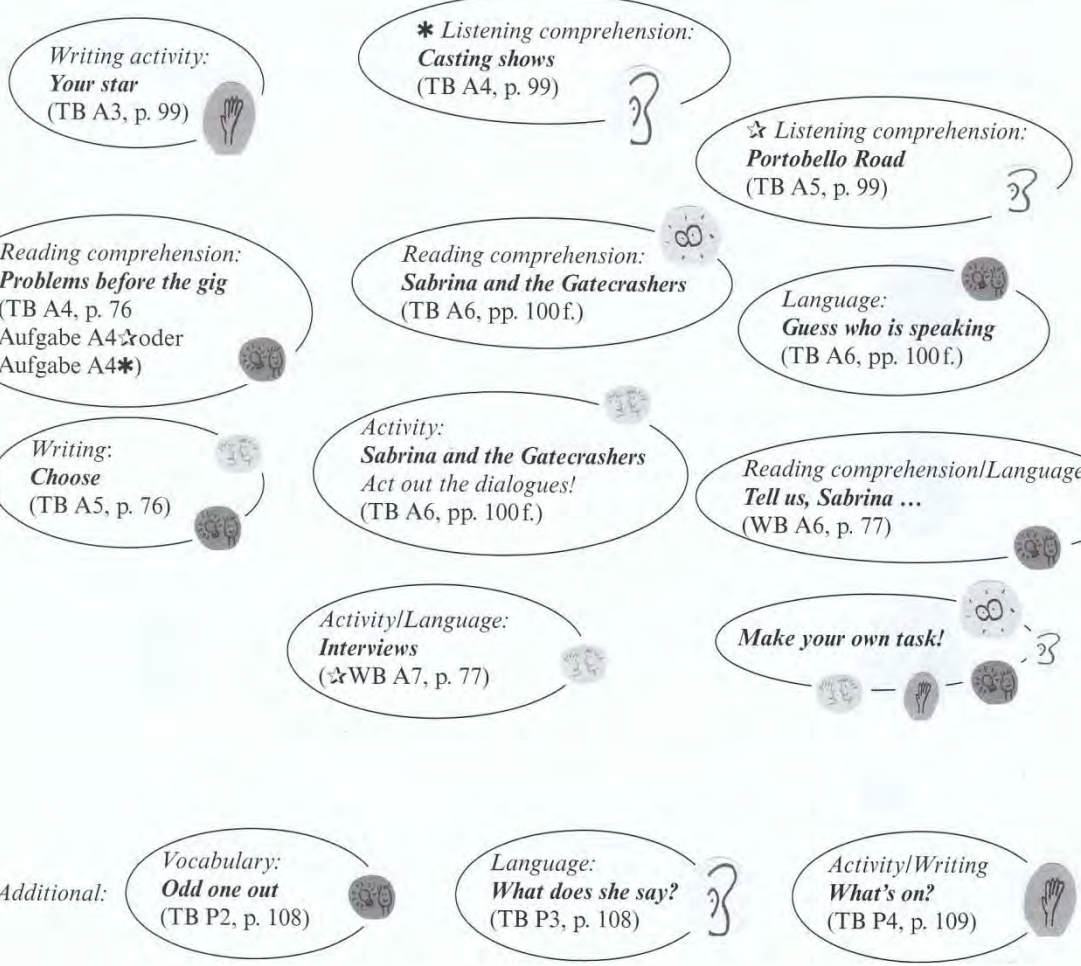 Writing activity:
Your star
(TB A3, p. 99)
✱ Listening comprehension:
Casting shows
(TB A4, p. 99)
✰ Listening comprehension:
Portobello Road
(TB A5, p. 99)
Reading comprehension:
Problems before the gig
(TB A4, p. 76
Aufgabe A4✰oder
Aufgabe A4✱)
Reading comprehension:
Sabrina and the Gatecrashers
(TB A6, pp. 100f.)
Language:
Guess who is speaking
(TB A6, pp. 100f.)
Writing:
Choose
(TB A5, p. 76)
Activity:
Sabrina and the Gatecrashers
Act out the dialogues!
(TB A6, pp. 100f.)
Reading comprehension/Language
Tell us, Sabrina ...
(WB A6, p. 77)
Activity/Language:
Interviews
(✰WB A7, p. 77)
Make your own task!
Additional:
Vocabulary:
Odd one out
(TB P2, p. 108)
Language:
What does she say?
(TB P3, p. 108)
Activity/Writing
What's on?
(TB P4, p. 109)